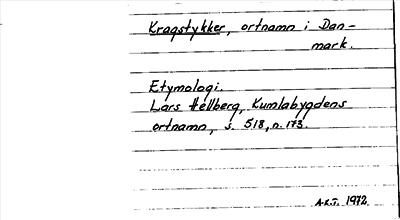 Kragstykker, ortnamn i Dan-
mark.
Etymologi.
Lars Hellberg, Kumlabygdens
ortnamn, s. 518, n. 173.
A.L.T. 1972